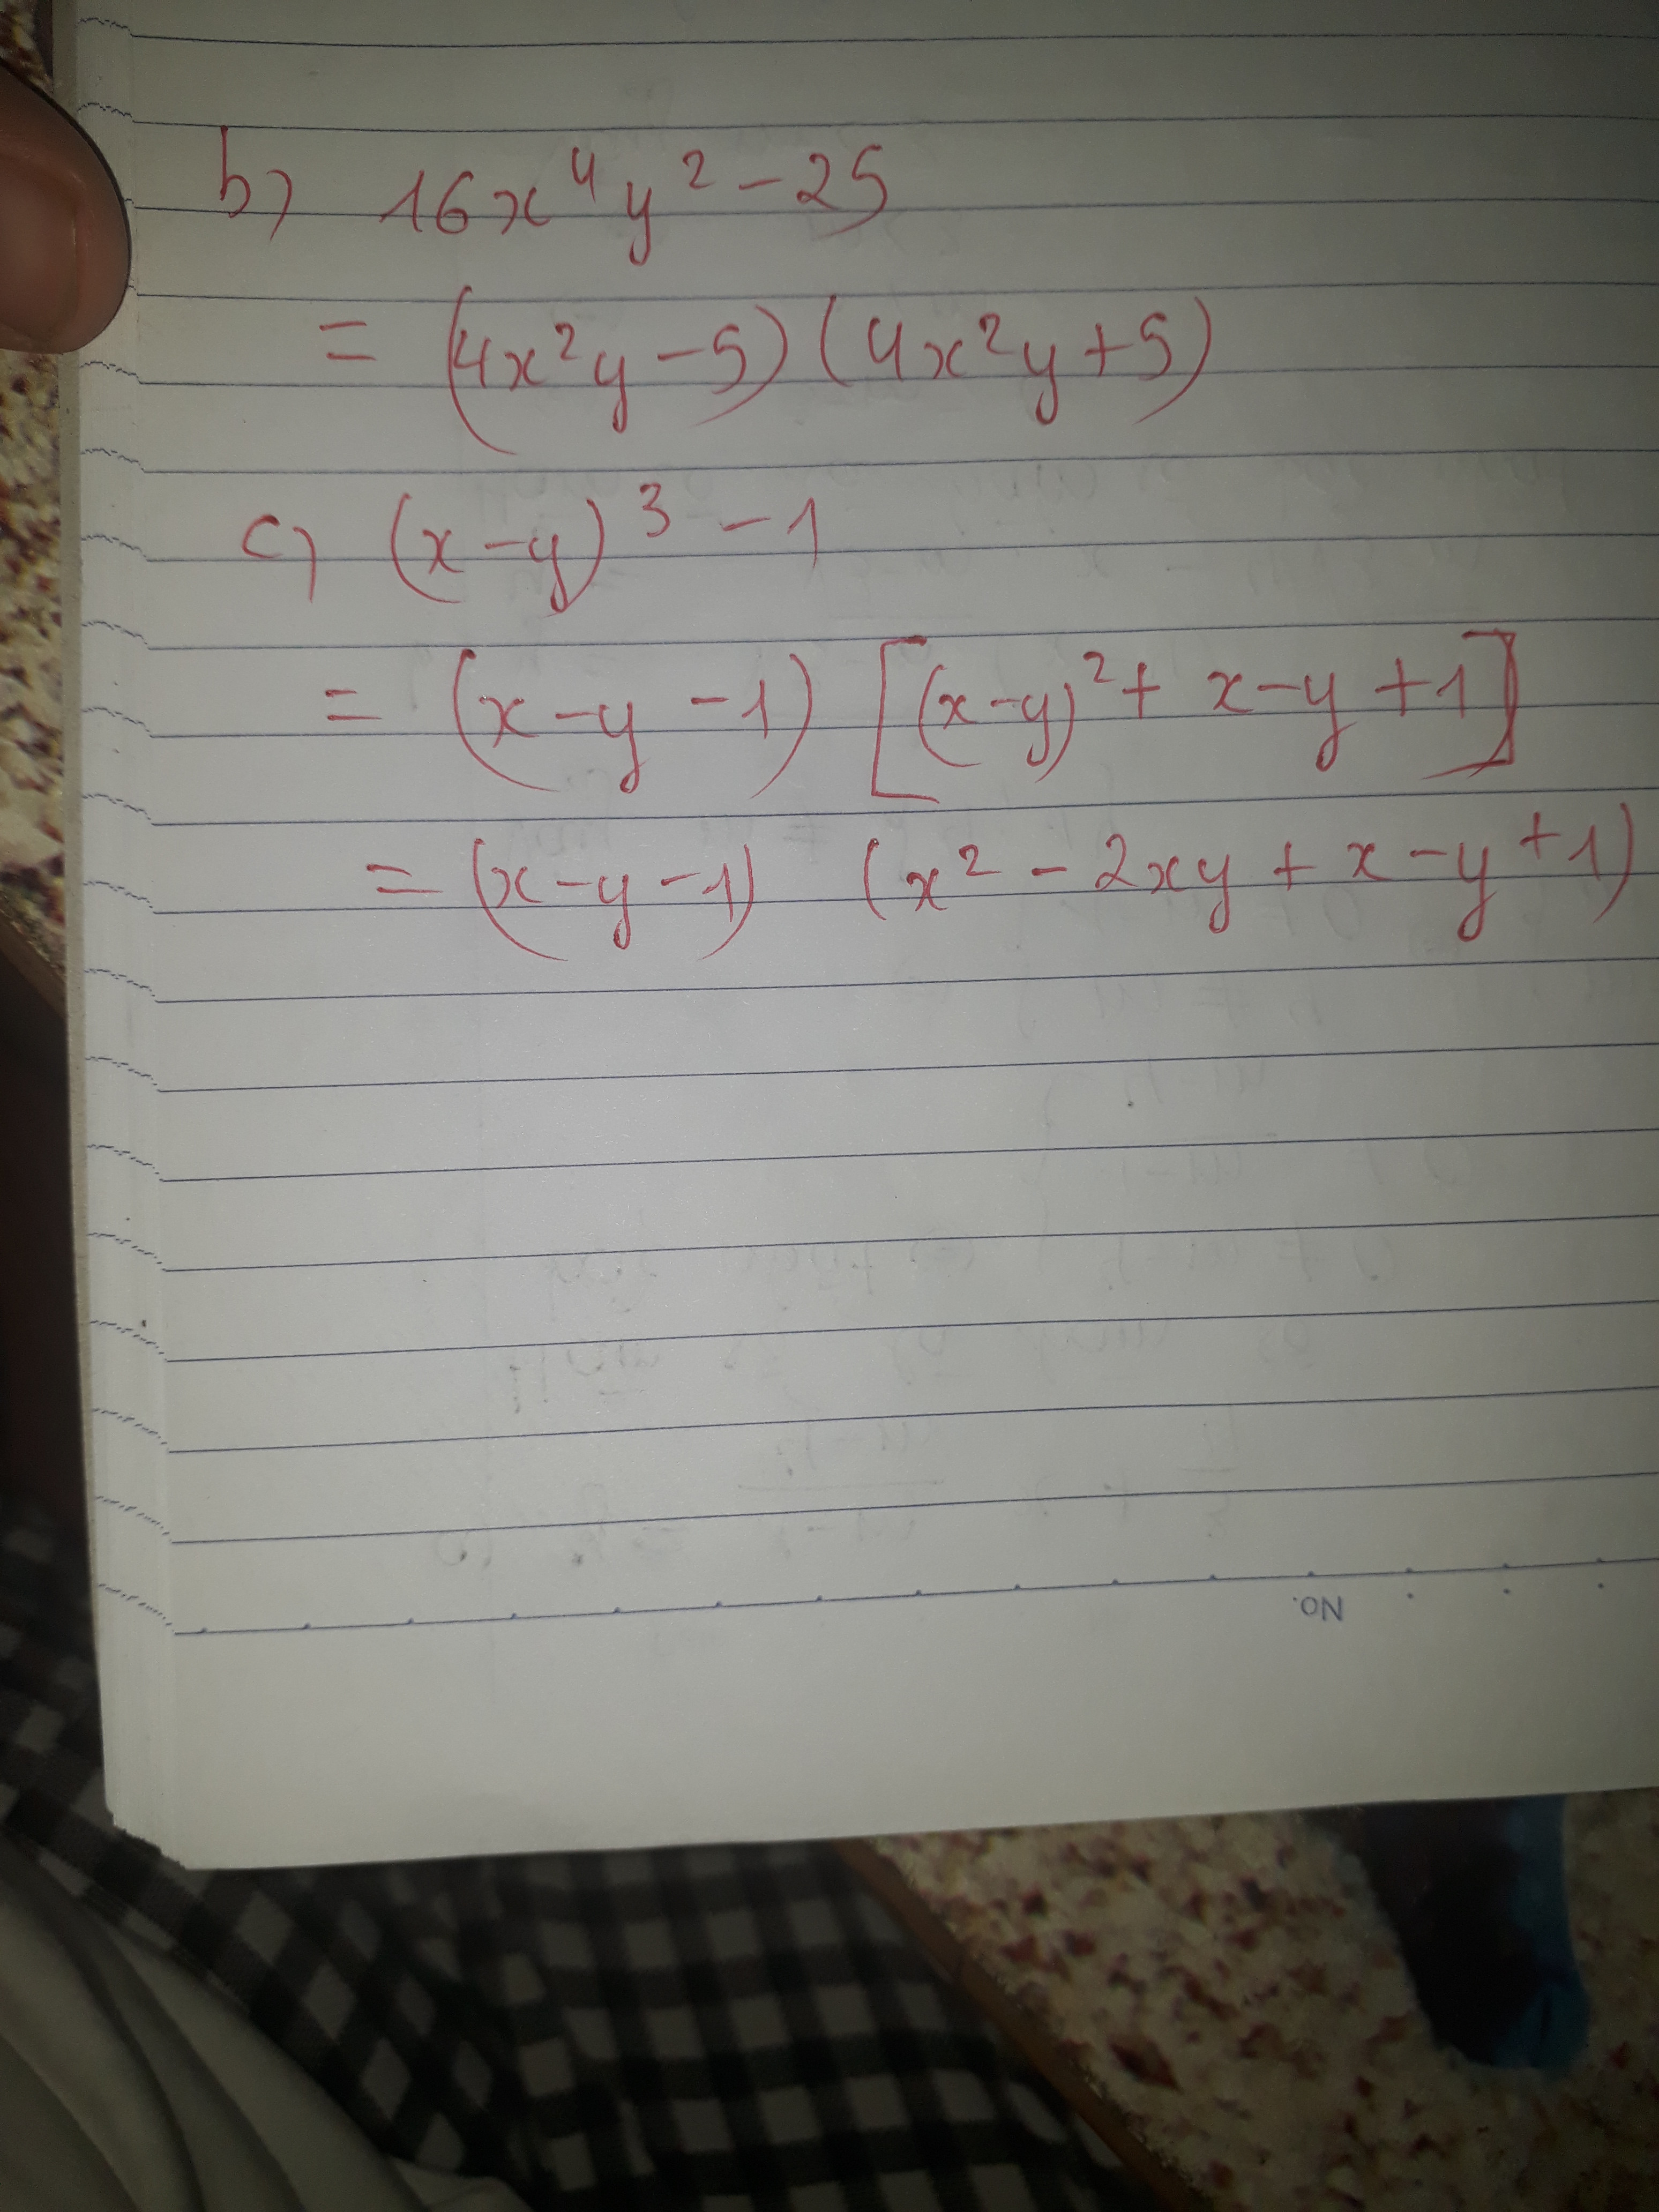 b) 16x⁴y² - 25
= (4x²y - 5)(4x²y + 5)
c) (x - y)³ - 1
= (x - y - 1) [(x - y)² + x - y + 1]
= (x - y - 1) (x² - 2xy + x - y + 1)
No.